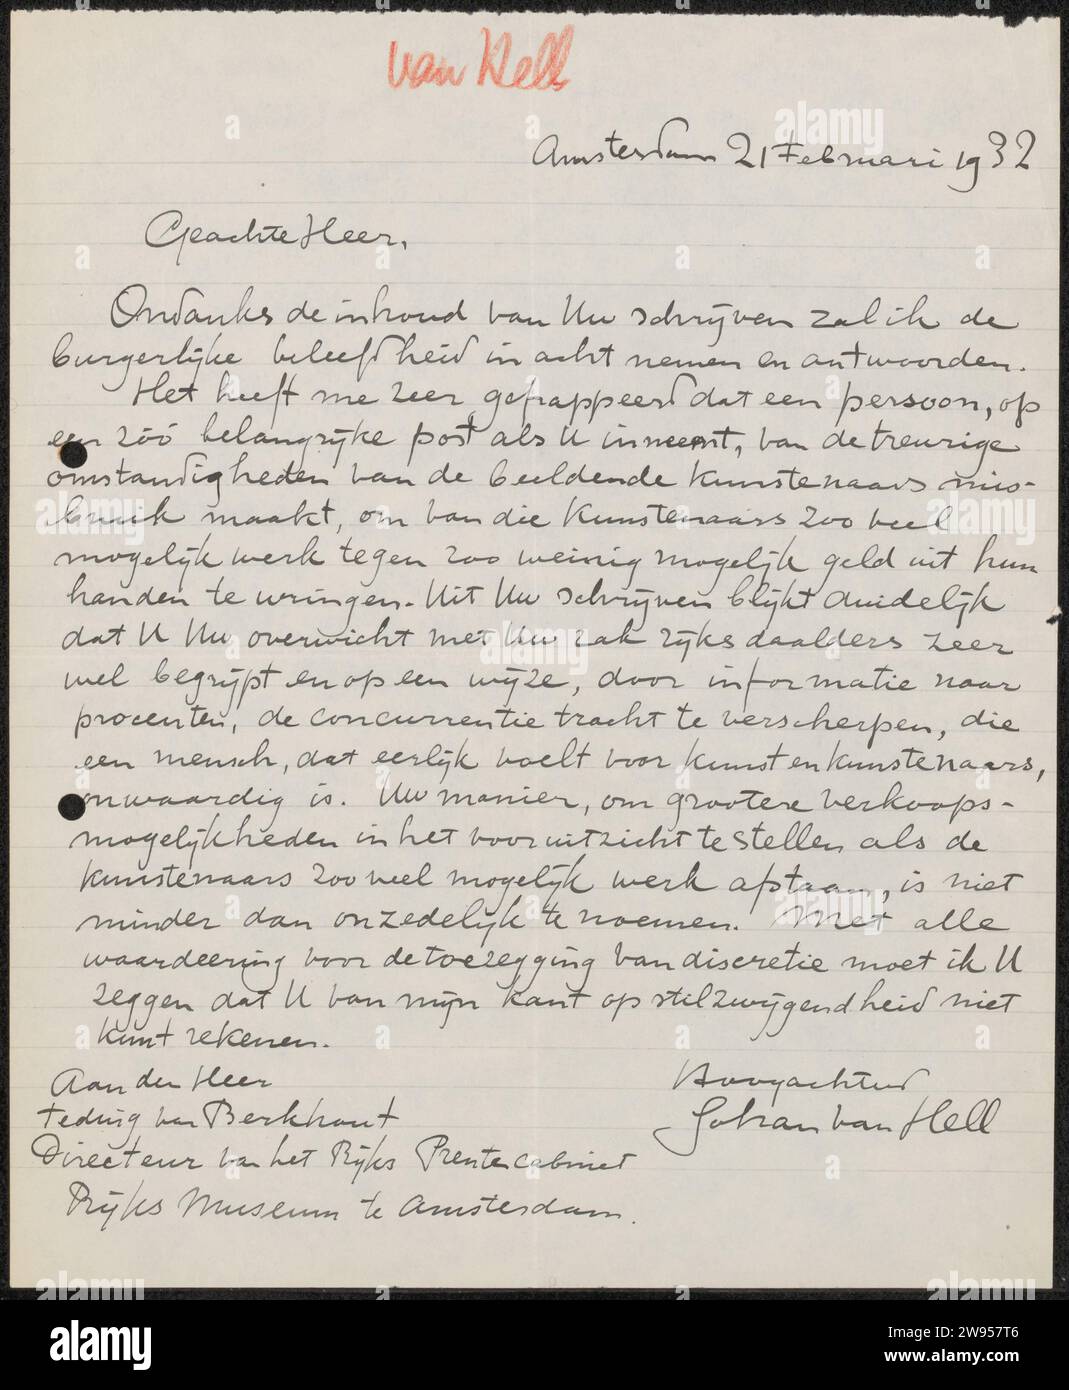 van Hell
Amsterdam 21 Februari 1932
Geachte Heer,
Ondanks de inhoud van Uw schrijven zal ik de
burgerlijke beleefdheid in acht nemen en antwoorden.
Het heeft me zeer gefrappeerd dat een persoon, op
een zóó belangrijke post als U inneemt, van de treurige
omstandigheden van de beeldende kunstenaars mis-
bruik maakt, om van die kunstenaars zoo veel
mogelijk werk tegen zoo weinig mogelijk geld uit hun
handen te wringen. Uit Uw schrijven blijkt duidelijk
dat U Uw overwicht met Uw zak rijksdaalders zeer
wel begrijpt en op een wijze, door informatie naar
procenten, de concurrentie tracht te verscherpen, die
een mensch, dat eerlijk voelt voor kunst en kunstenaars,
onwaardig is. Uw manier, om grootere verkoops-
mogelijkheden in het vooruitzicht te stellen als de
kunstenaars zoo veel mogelijk werk afstaan, is niet
minder dan onzedelijk te noemen. Met alle
waardeering voor de toezegging van discretie moet ik U
zeggen dat U van mijn kant op stilzwijgendheid niet
kunt rekenen.
Aan den Heer
Teding van Berkhout
Directeur van het Rijks Prentencabinet
Rijks Museum te Amsterdam.
Hoogachtend
Johan van Hell
alamy
Image ID: 2W957T6
www.alamy.com